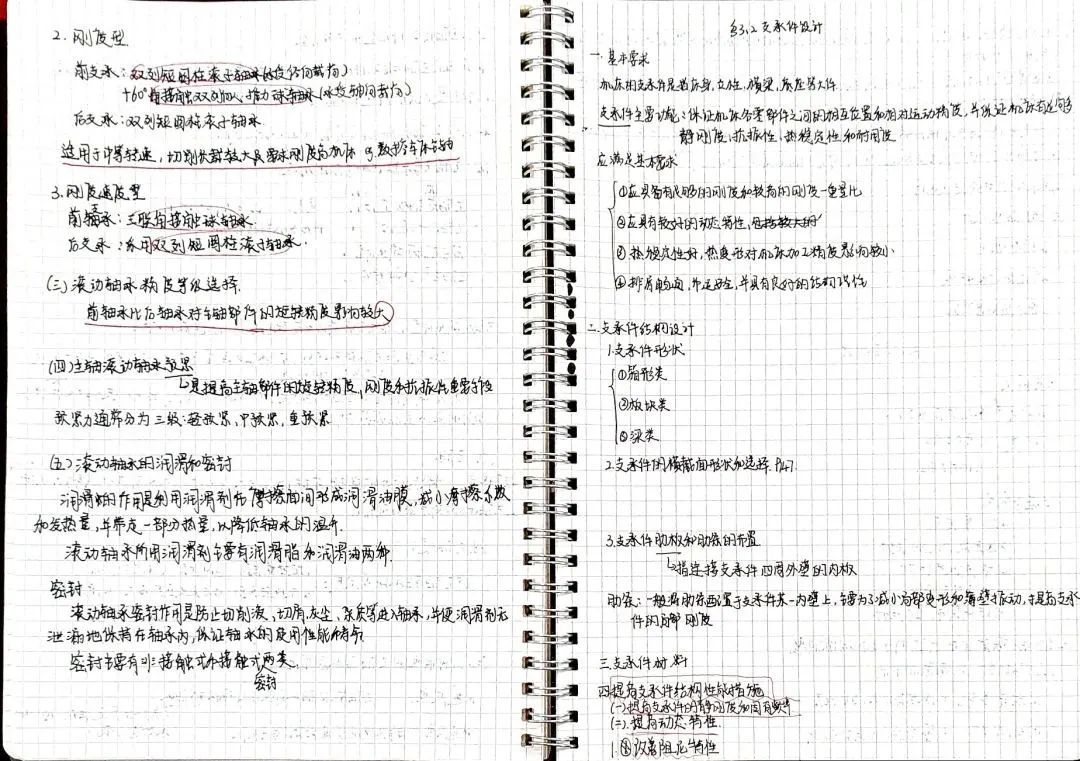 2. 刚度型
前支承：双列短圆柱滚子轴承(承受径向载荷)
+60°角接触双列向心推力球轴承(承受轴向载荷)
后支承：双列短圆柱滚子轴承
适用于中等转速，切削负载较大且要求刚度高机床 eg.数控车床主轴
3.刚度速度型
前轴承：三联角接触球轴承
后支承：采用双列短圆柱滚子轴承.
(三)滚动轴承精度等级选择.
前轴承比后轴承对主轴部件的旋转精度影响较大
(四)主轴滚动轴承预紧
是提高主轴部件的旋转精度、刚度和抗振性重要手段
预紧力通常分为三级:轻预紧、中预紧、重预紧
(五)滚动轴承的润滑和密封
润滑的作用是利用润滑剂在摩擦面间形成润滑油膜，减小摩擦系数
和发热量，并带走一部分热量，以降低轴承的温升.
滚动轴承所用润滑剂主要有润滑脂和润滑油两种
密封
滚动轴承密封作用是防止切削液、切屑、灰尘、杂质等进入轴承，并使润滑剂无
泄漏地保持在轴承内，保证轴承的使用性能和寿命
密封主要有非接触式和接触式两类.
密封
§3.2 支承件设计
一.基本要求
机床的支承件是指床身、立柱、横梁、底座等大件
支承件主要功能：保证机床各零部件之间的相互位置和相对运动精度，并保证机床有足够
静刚度、抗振性、热稳定性和耐用度
应满足基本要求
①应具有足够的刚度和较高的刚度-重量比
②应具有较好的动态特性，包括较大的
③热稳定性好，热变形对机床加工精度影响较小
④排屑畅通，吊运安全，并具有良好的结构工艺性
二.支承件结构设计
1.支承件形状
①箱形类
②板块类
③梁类
2.支承件的横截面形状和选择. P147
3.支承件肋板和肋条的布置
指连接支承件四周外壁的内板
肋条：一般将肋条配置于支承件某一内壁上，主要为了减小局部变形和薄壁振动，才提高支承
件的局部刚度
三.支承件材料
四.提高支承件结构性能措施
(一)提高支承件的静刚度和固有频率
(二).提高动态特性.
1.①改善阻尼特性